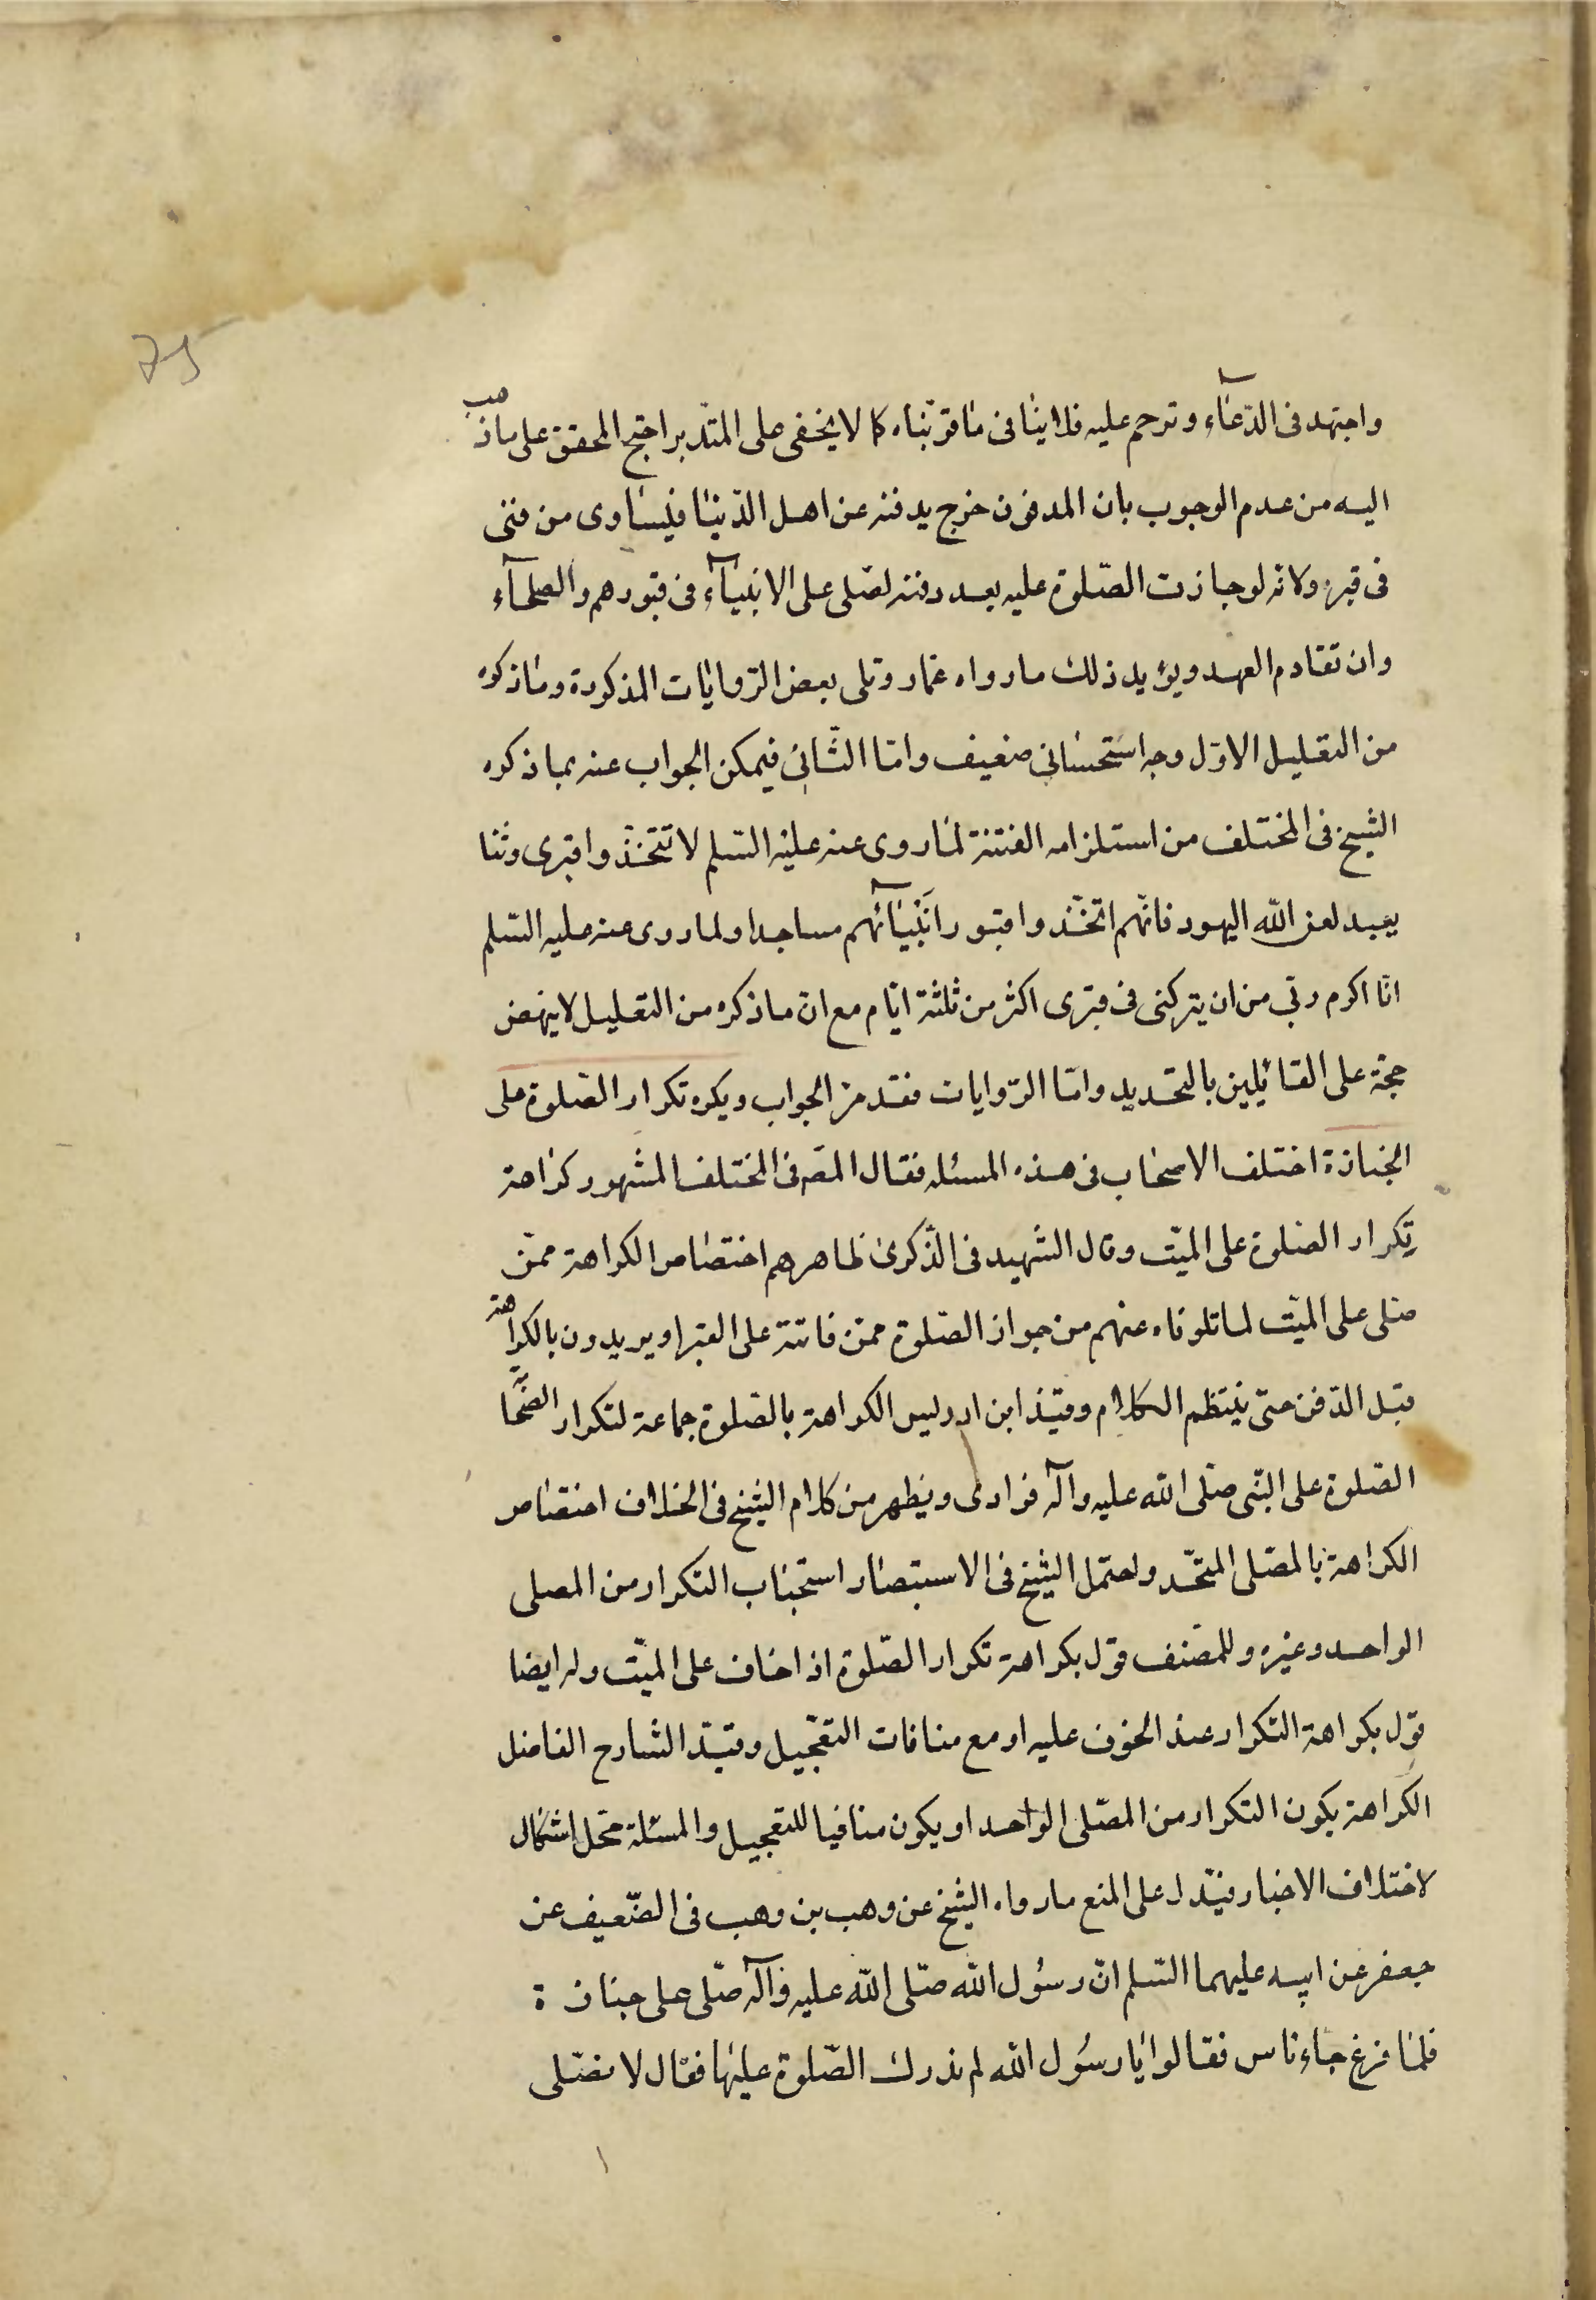 75
واجتهد فى الدّعآء وترحم عليه فلا ينافى ما قوّيناه كما لا يخفى على المتدبر احتج المحقق على ما ذهب
اليه من عدم الوجوب بان المدفون خرج بدفنه عن اهل الدّنيا فيساوى من فنى
فى قبره ولانه لو جازت الصّلوة عليه بعد دفنه لصلى على الانبيآء فى قبورهم والصلحآء
وان تقادم العهد ويؤيد ذلك ما رواه عمار وتلى بعض الرّوايات المذكورة وما ذكره
من التعليل الاوّل وجه استحسانى ضعيف وامّا الثّانى فيمكن الجواب عنه بما ذكره
الشيخ فى المختلف من استلزامه الفتنة لما روى عنه عليه السّلم لا تتخذوا قبرى وثنا
يعبد لعن الله اليهود فانّهم اتخّذوا قبور انبيآئهم مساجدا ولما روى عنه عليه السّلم
انا اكرم ربّي من ان يتركنى فى قبرى اكثر من ثلثة ايّام مع انّ ما ذكره من التعليل لا ينهض
حجة على القائلين بالتحديد وامّا الرّوايات فقد مرّ الجواب ويكره تكرار الصّلوة على
الجنازة اختلف الاصحاب فى هذه المسئلة فقال المصّ فى المختلف المشهور كراهة
تكرار الصّلوة على الميّت وقال الشهيد فى الذّكرى ظاهرهم اختصاص الكراهة ممّن
صلى على الميّت لما تلوناه عنهم من جواز الصّلوة ممّن فاتته على القبر او يريدون بالكراهة
قبل الدّفن حتى ينتظم الكلام وقيّد ابن ادريس الكراهة بالصّلوة جماعة لتكرار الصّحابة
الصّلوة على النّبى صلّى الله عليه وآله فرادى ويظهر من كلام الشيخ فى الخلاف اختصاص
الكراهة بالمصّلى المتّحد واحتمل الشيخ فى الاستبصار استحباب التكرار من المصلى
الواحد وغيره وللمصنف قول بكراهة تكرار الصّلوة اذا خاف على الميّت وله ايضا
قول بكراهة التكرار عند الخوف عليه او مع منافات التعجّيل وقيّد الشارح الفاضل
الكراهة بكون التكرار من المصّلى الواحد او يكون منافيا للتعجيل والمسئلة محّل اشكال
لاختلاف الاخبار فيدّل على المنع ما رواه الشيخ عن وهب بن وهب فى الضّعيف عن
جعفر عن ابيه عليهما السّلم انّ رسُول الله صّلى الله عليه وآله صّلى على جنازة
فلمّا فرغ جاء ناس فقالوا يا رسُول الله لم ندرك الصّلوة عليها فقال لا يصّلى